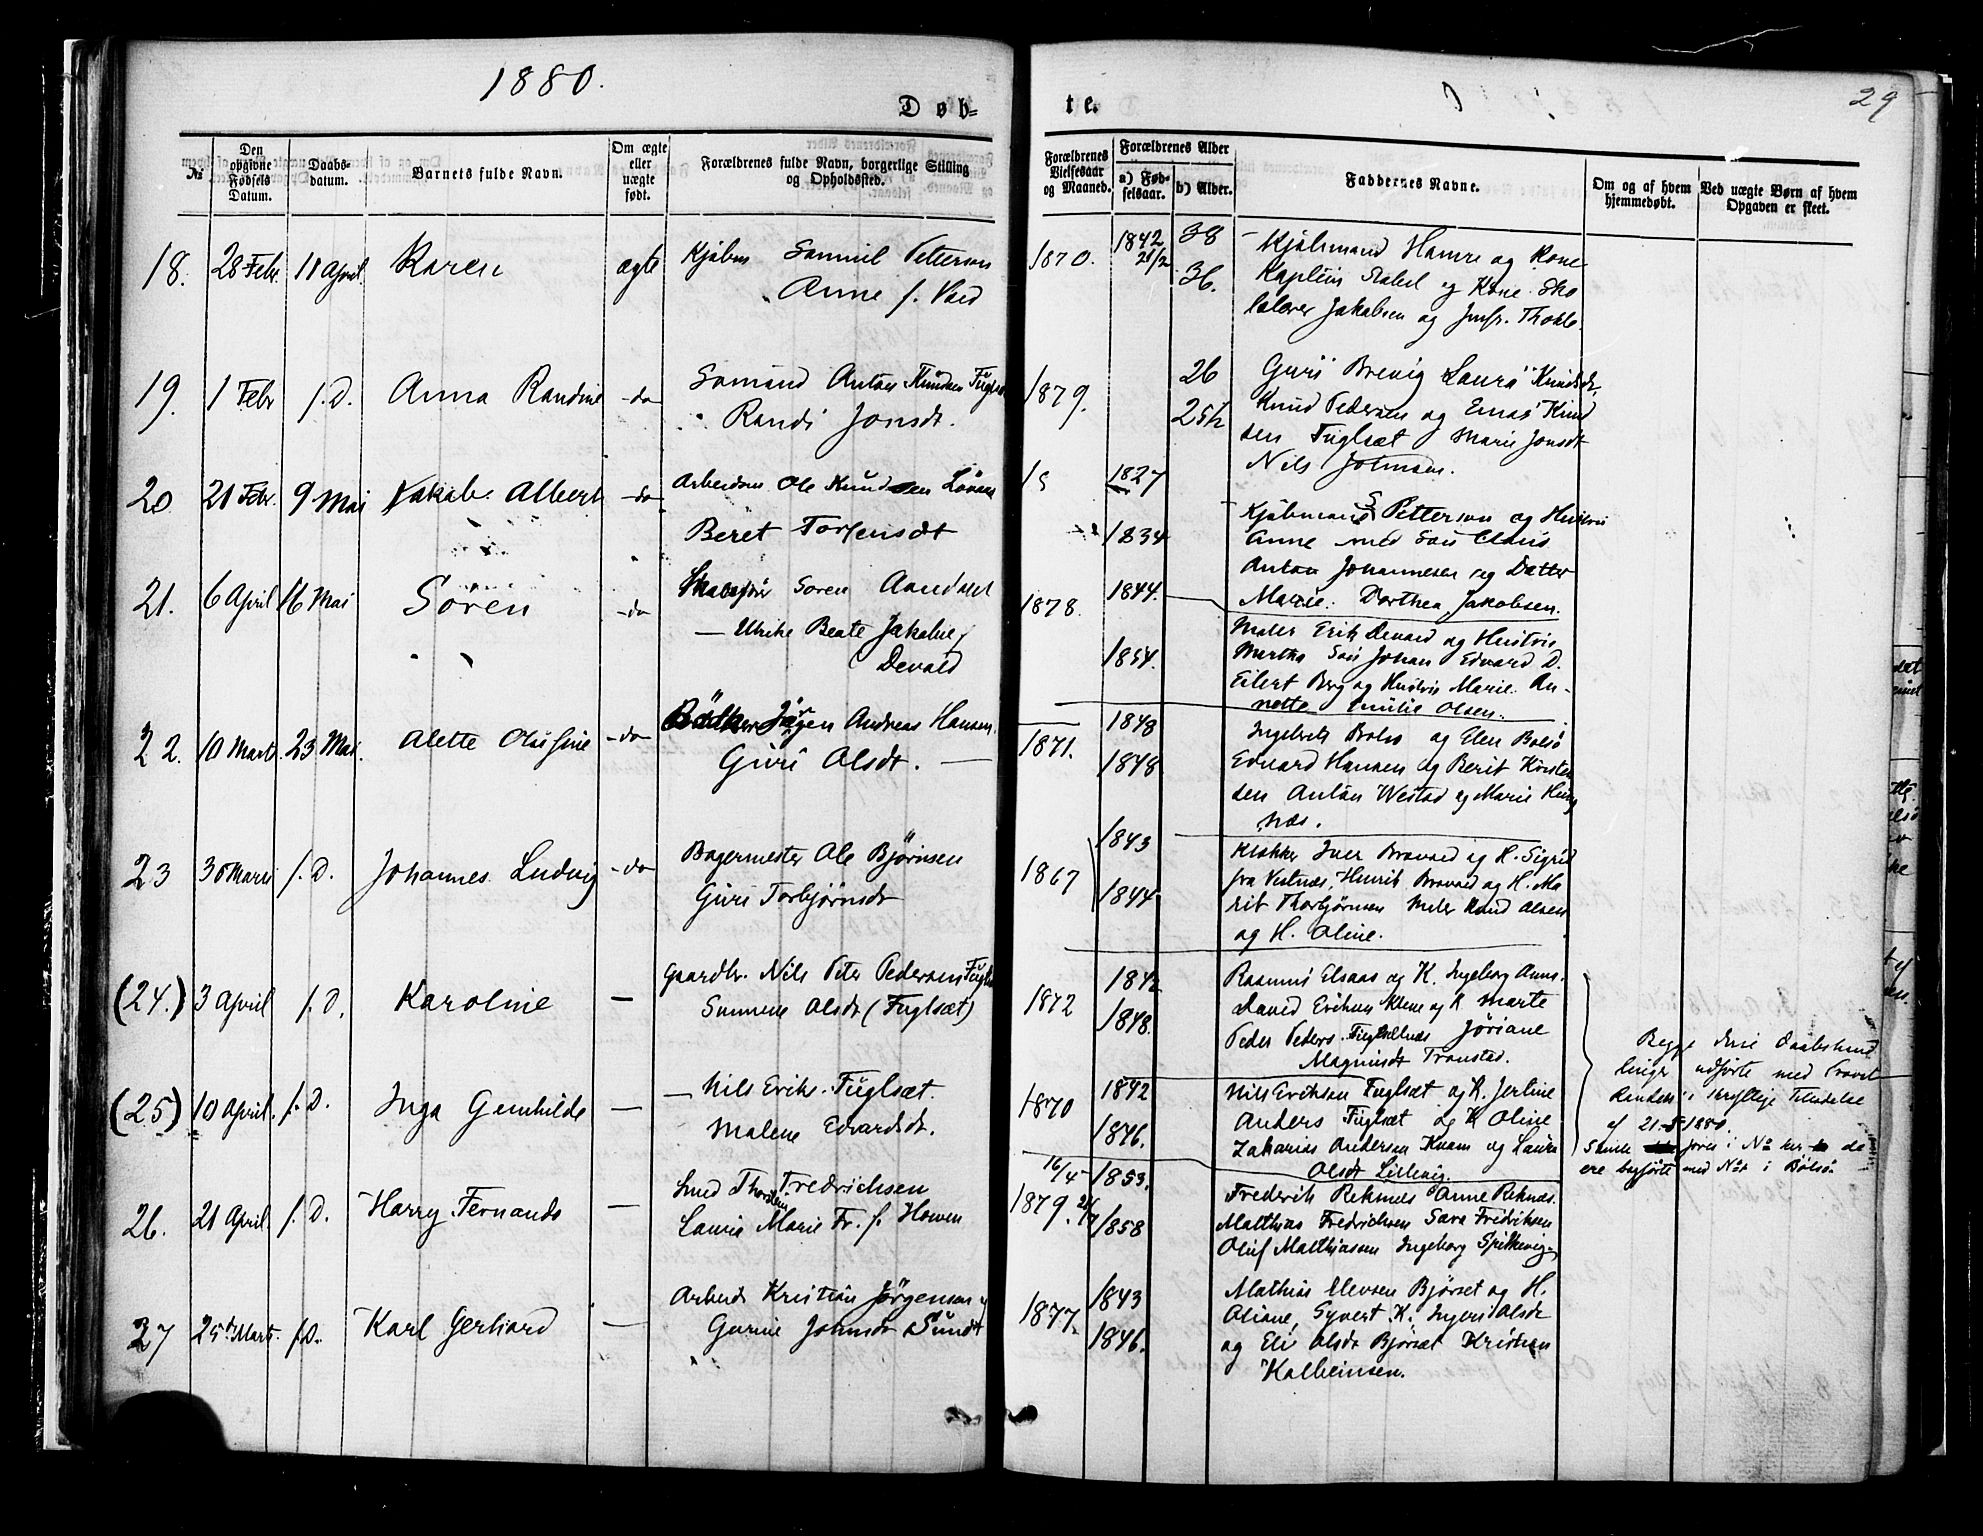 1880.
29
Døb-
te.
No
Den opgivne Fødsels Datum.
Daabs-datum.
Barnets fulde Navn.
Om ægte eller uægte født.
Forældrenes fulde Navn, borgerlige Stilling og Opholdssted.
Forældrenes Vielsesaar og Maaned.
Forældrenes Alder
a) Fødselsaar.
b) Alder.
Faddernes Navne.
Om og af hvem hjemmedøbt.
Ved uægte Børn af hvem Opgaven er skeet.
18. 28 Febr. 11 April. Karen ægte Kjøbm Samuel Petterson
Anne f. Vold
1870. 1842 38
21/2 36.
Kjøbmand Hamre og Kone
Kaptein Stabel og Kone Sko
lelærer Jakobsen og Jmfr. Thokle
19. 1 Febr s. D. Anna Randine do Sømand Anton Knudsen Fuglset
Randi Jonsdt.
1879. 26
25 1/2
Guri Brevig Laura Knudsdt,
Knud Pedersen og Knud
sen Fuglsæt Marie Jonsdt
Nils Johnsen.
20 21 Febr. 9 Mai Jakob Albert do Arbeidsm Ole Knudsen
Beret Torstensdt
18 1827
1834
Kjøbmand S Petterson og Hustru
Anne med Søn Claus
Anton Johannesen og Datter
Marie. Dorthea Jakobsen.
21. 6 April 16 Mai Søren do Søren Aandahl
Ulrike Beate Jakobine f
Devold
1878. 1844.
1854.
Maler Erik Devold og Hustru
Martha Søn Johan Edvard D.
Eilert Berg og Hustru Marie An-
nette Emilie Olsen.
22. 10 Marts. 23 Mai. Alette Olufine do Bødker Jørgen Andreas Hansen.
Guri Olsdt.
1871. 1848
1848
Ingebrik Bolsø og Elen Bolsø
Edvard Hansen og Berit Kristen
sen Anton Westad og Marie
næs.
23 30 Marts s. D. Johannes Ludvig do Bagermester Ole Bjørnsen
Guri Torbjørnsdt
1867 1843
1844
Klokker Iver Bravold og H. Sigrid
fra Vestnæs, Henrik Bravold og H. Ma
rit Thorbjørnsen Maler Knud Olsen
og H. Oline.
(24.) 3 April s. D. Karoline — Gaardbr. Nils Peter Pedersen Fuglset
Sunneve Olsdt (Fuglsæt)
1872 1842
1848.
Rasmus Elsaas og K. Ingeborg Anna
David Eriksen og K Marte
Peder Peders. Jøriane
Magnusdt Tronstad.
Begge disse Daabshand
linger udførte med Provst
i skriftlige Tilladelse
af 21-5-1880.
(25) 10 April. s. D. Inga Gunhilde — Nils Eriks. Fuglsæt.
Malene Edvardsdt.
1870 1842
1846.
Nils Eriksen Fuglsæt og K. Jertine
Anders Fuglsæt og K Oline
Zakarias Andersen Kvam og Laura
Olsdt Lillevig.
ere bogførte med No i Bolsø
26. 21 April. s. D. Harry Fernando — Smed Thorstein Fredrichsen
Laura Marie Fr. f. Howen
16/4 1853.
1879. 1858
Frederik Reknæs Anne Reknæs.
Matthias Fredrichsen Sara Fredriksen
Oluf Matthiasen Ingeborg Spilkevig.
27 25de Marts. s. D. Karl Gerhard — Arbeids Kristian Jørgensen og
Gurine Johnsdt Sundt
1877. 1843
1846.
Mathias Bjørset og H.
Oliane, Syvert K. Olsdt
og Eli Olsdt Bjørsæt Kristian
Kolbeinsen.